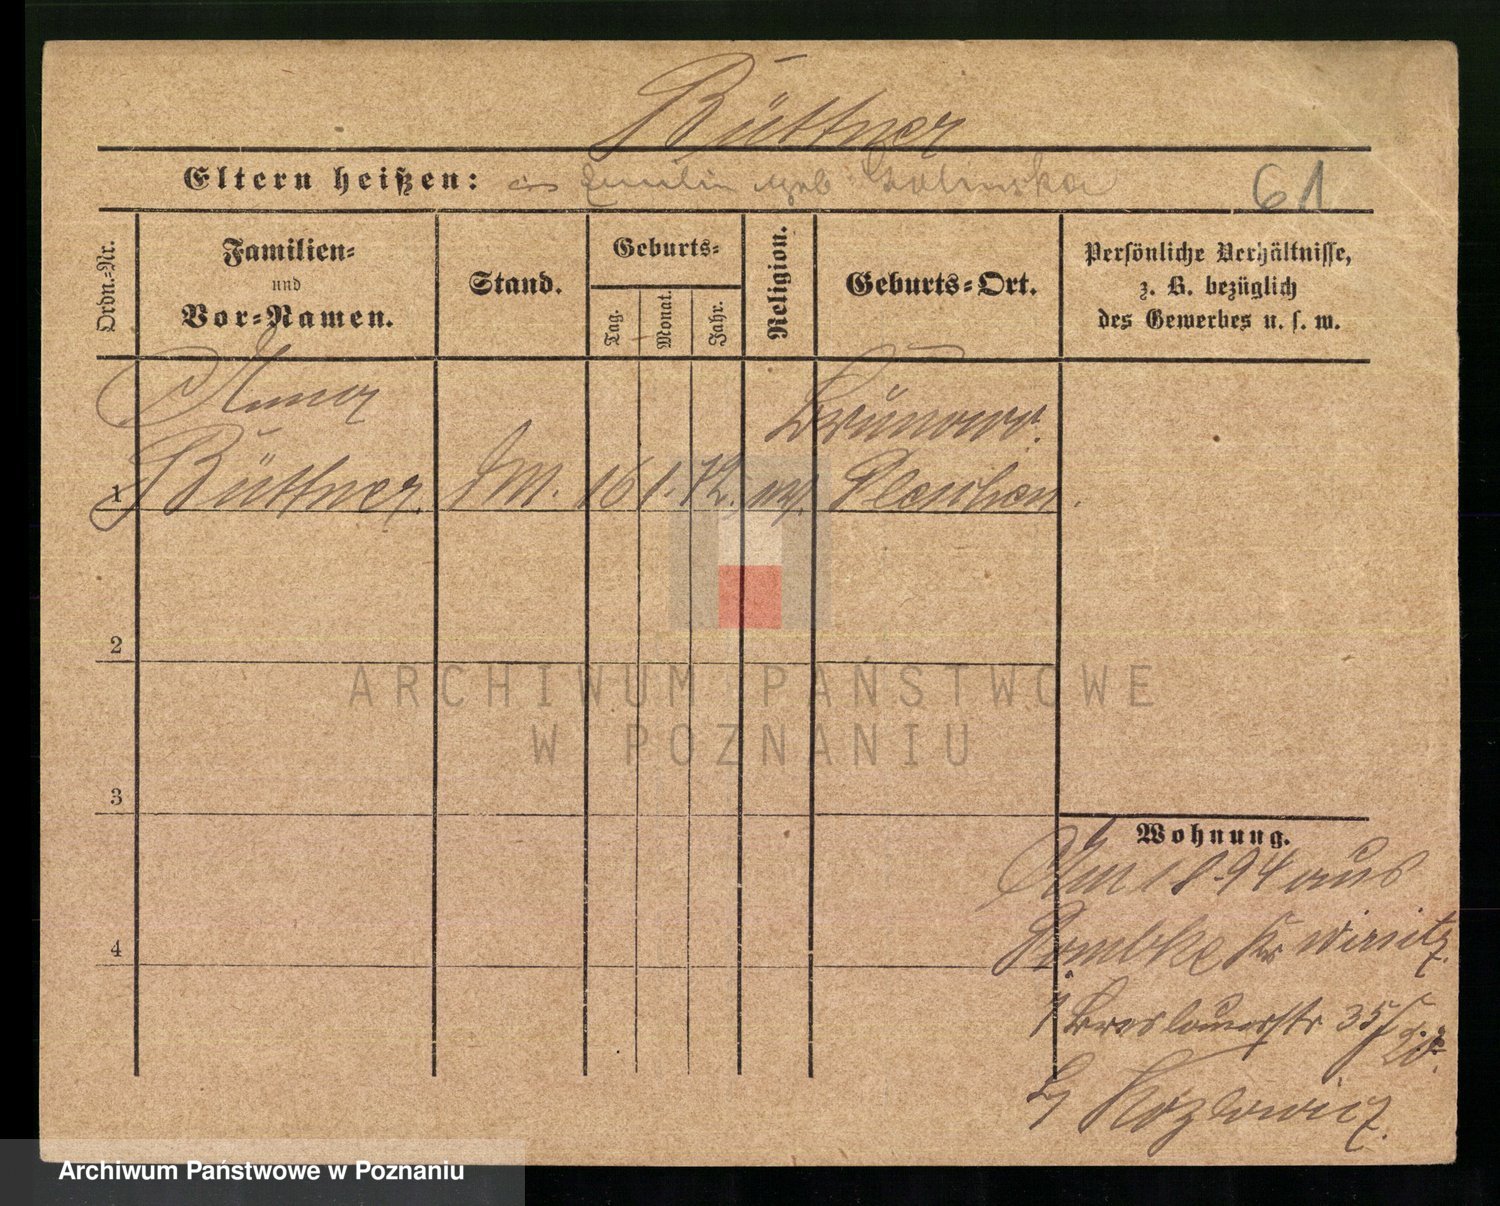 Büttner
Eltern heißen: Emilie geb Golinska
61
Ordn.-Nr.
Familien-
und
Vor-Namen.
Stand.
Geburts-
Tag.
Monat.
Jahr.
Religion.
Geburts-Ort.
Persönliche Verhältnisse,
z. B. bezüglich
des Gewerbes u. s. w.
Anna
Brünow.
1 Büttner. M. 16 1. 72. ev. Pleschen.
2
3
4
Wohnung.
Am 1 8-94 aus
Kr Wirsitz.
Breslauerstr 35
Kozlowicz.
ARCHIWUM PAŃSTWOWE
W POZNANIU
Archiwum Państwowe w Poznaniu